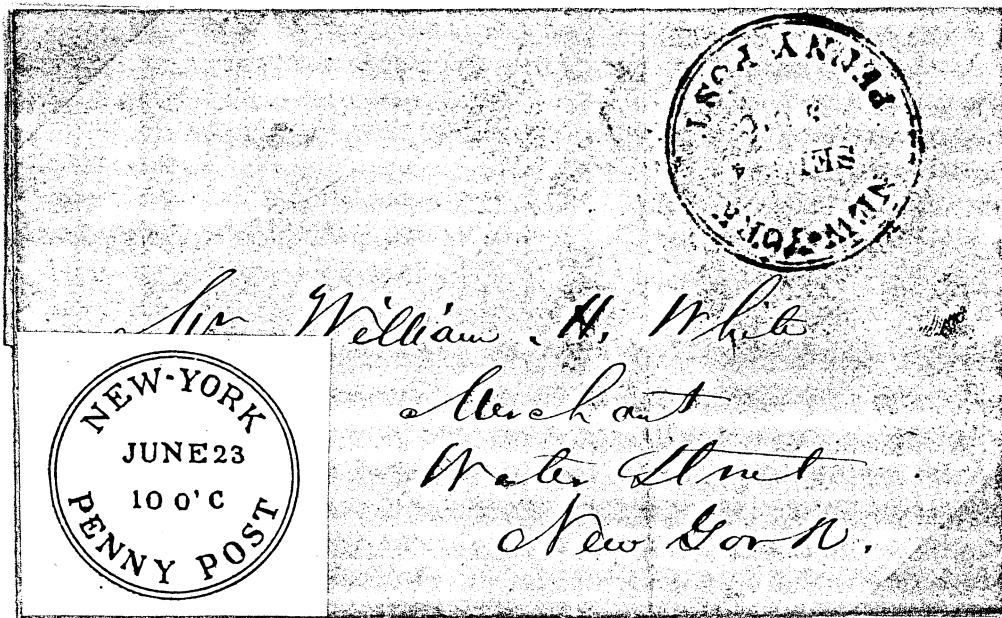 PENNY POST
NEW-YORK
Mr William. H. White
Merchant
Water Street
New York.
NEW-YORK
JUNE 23
10 O'C
PENNY POST